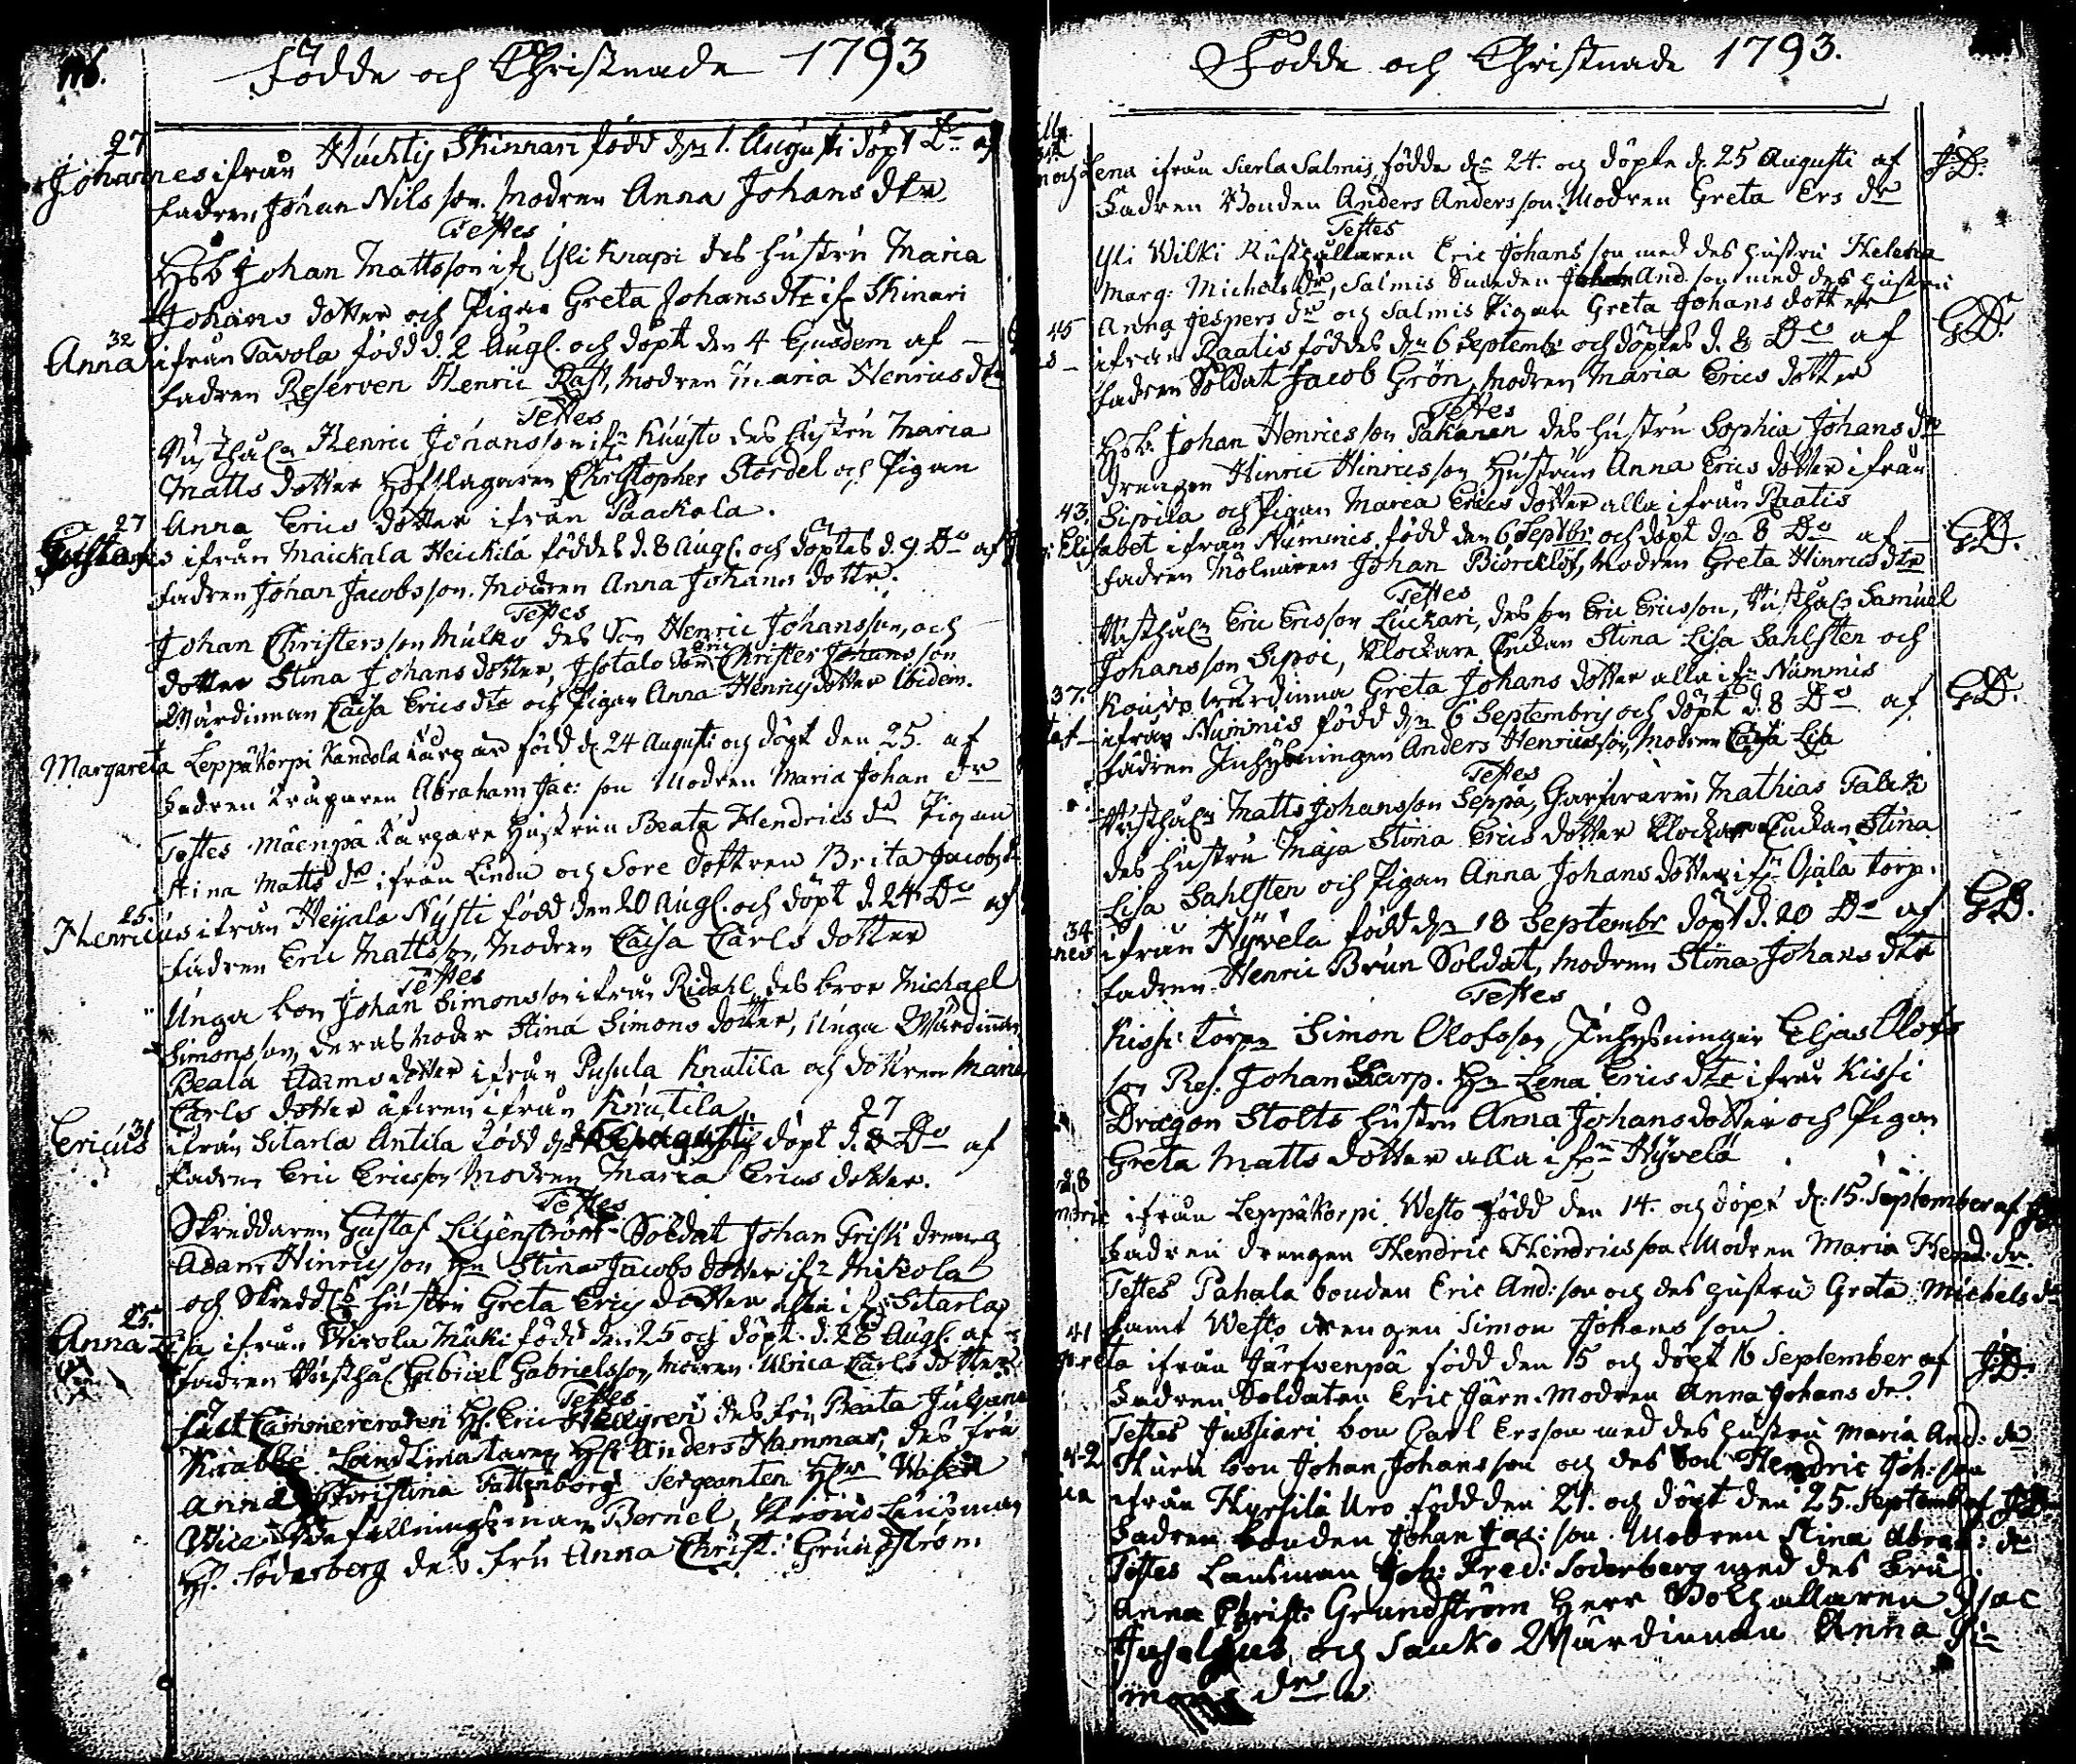 Födde och Christnade 1793
27
Johannes ifrån Huchtis Skinnari född den 1. Augusti döpt Do af
fadren Johan Nilsson. Modren Anna Johans dtr
Testes
Johan Mattsson if Yli Knapi des hustru Maria
Johans dotter och Pigan Greta Johans dtr if Skinari
32
Anna ifrån Tavola född d. 2 Aug. och döpt den 4 Ejusdem af
fadren Reserven Henric Rast, modren Maria Henrics dtr
Testes
Rusthåln Henric Johansson ifn Kuusto des hustru Maria
Matts dotter Hofslagaren Christopher Stordel och Pigan
Anna Erics dotter ifrån Paackola.
27
Gustafs ifrån Maickala Heickilä föddes d. 8 Aug. och döptes d. 9. Do af
fadren Johan Jacobsson. Modren Anna Johans dotter.
Testes
Johan Christersson Mulko des Son Henric Johansson, och
dotter Stina Johans dotter, Isotalo Christer Johansson
Wärdinnan Caisa Erics dtr och Pigan Anna Henrics dotter ibidem.
Margareta Leppäkorpi Kandola född d. 24 Augusti och döpt den 25. af
Fadren Abraham Jac: son Modren Maria Johan dr
Testes Mäenpä hustrun Beata Hendrics dr Pigan
Stina Matts dr ifrån Lindu och Sore dottren Brita Jacobs dr
25.
Henricus ifrån Heijala Nysti född den 20 Aug. och döpt d. 24 Do af
fadren Eric Mattsson, Modren Caisa Carls dotter
Testes
Unga bon Johan Simonsson ifrån Ridahl, des bror Michael
Simonsson, deras Moder Stina Simons dotter, Unga Wärdinnan
Beata Adams dotter ifrån Pusula Knutila och dottren Maria
Carls dotter äfven ifrån Knutila
31 27
Ericus ifrån Sitarla Antila född den Augusti döpt d. 8 Do af
fadren Eric Ericsson modren Maria Erics dotter.
Testes
Skreddaren Gustaf Liljenström Soldat Johan Frisk dreng
Adam Hinricsson Hn Stina Jacobs dotter ifn Mikola
och Skredd hustru Greta Erics dotter alla if Sitarla
25.
Anna Lisa ifrån Wirola Mäki född den 25 och döpt d. 28 Aug. af
fadren Rusthål Gabriel Gabrielsson, modren Ulrica Carls dotter
Testes
Fält Cammereraren H. Eric des fru Beata Juliana
Knabbe Landtmätaren Hr Anders Hammar, des fru
Anna Christina Fattenborg Sergeanten Hr
Wice Befallningsman Bernel, Krono Länsman
H. Söderberg des fru Anna Christ: Grundström
Födde och Christnade 1793.
och Lena ifrån Sierla Salmis, födde dn 24. och döpte d. 25 Augusti af J:B:
Fadren Bonden Anders Andersson Modren Greta Ers dr
Testes
Yli Wilki Rusthållaren Eric Johansson med des hustru Helena
Marg: Michels dr, Salmis And. son med des hustru
Anna Jespers dr och Salmis Pigan Greta Johans dotter
45
ifrån Raatis föddes den 6 Septembr och döptes d. 8 Do af GB.
fadren Soldat Jacob Grön, modren Maria Erics dotter
Testes
Johan Henricsson Pakanen des hustru Sophia Johans dr
drengen Hinric Hinricsson Hustrun Anna Erics dotter ifrån
Sipila och Pigan Maria Erics dotter alla ifrån Raatis
43.
Elisabet ifrån Nummis, född den 6 Septbr och döpt den 8 Do af GB.
fadren Molnaren Johan Biörcklöf, Modren Greta Hinrics dtr
Testes
Rusthåln Eric Ericsson Luckari, des son Eric Ericsson, Rusthåln Samuel
Johansson Sipoi, Klockare Enckan Stina Lisa Sahlsten och
Wärdinna Greta Johans dotter alla ifn Nummis
37.
ifrån Nummis född den 6 Septembris och döpt d. 8 Do af GB.
fadren Inhysningen Anders Henricsson, Modren Caisa Lisa
Testes
Rusthåln Matts Johansson Seppä, Garfvaren Mathias Talck
des hustru Maja Stina Erics dotter Klockare Enckan Stina
Lisa Sahlsten och Pigan Anna Johans dotter ifn Ojala torp.
34
ifrån Hyvelä född den 18 Septembr döpt d. 20 Do af GB.
fadren Henric Brun Soldat, modren Stina Johans dtr
Testes
Kissi torp Simon Olofsson Inhysningen Elias Olofs
son Res. Johan Skarp. Hn Lena Erics dtr ifrån Kissi
Dragon Stolts hustru Anna Johans dotter och Pigan
Greta Matts dotter alla ifrn Hyvelä
28
ifrån Leppäkorpi Westo född den 14. och döpt d. 15. September af
Fadren drengen Hendric Hendricsson Modren Maria Hend: dr.
Testes Pahala bonden Eric And: son och des hustru Greta Michels dr
samt Westo drengen Simon Johansson
41
Greta ifrån Järfvenpä född den 15 och döpt 16 September af J:B:
Fadren Soldaten Eric Järn. Modren Anna Johans dr.
Testes Jussiari bon Carl Ersson med des hustru Maria And: dr
42
bon Johan Johansson och des Son Hendric Joh: son
ifrån Hyrsilä Uro född den 21. och döpt den 25. Septemb af J:B:
Fadren bonden Johan Jac: son. Modren Stina Abrah: dr
Testes Länsman Joh: Fred: Söderberg med des Fru
Anna Christ: Grundström Herr Bokhållaren Isac
och Sauko Wärdinnan Anna Si-
mons dr